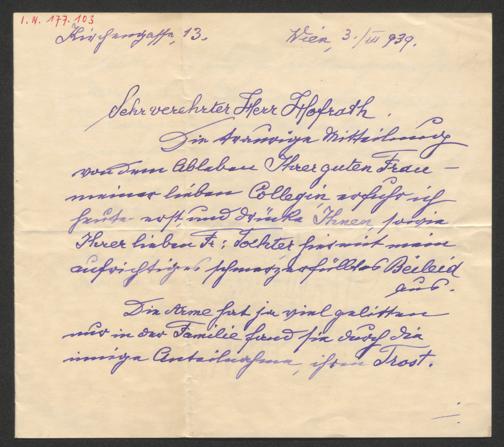 I.N. 177.103
Kirchengasse, 13. Wien, 3./III 939.
Sehr verehrter Herr Hofrath
Die traurige Mitteilung
von dem Ableben Ihrer guten Frau –
meiner lieben Collegin erfuhr ich
heute erst und drücke Ihnen, sowie
Ihrer lieben Fr: Tochter hiermit mein
aufrichtiges schmerzerfülltes Beileid
aus.
Die Arme hat ja viel gelitten
nur in der Familie fand sie durch die
innige Anteilnahme, ihren Trost.